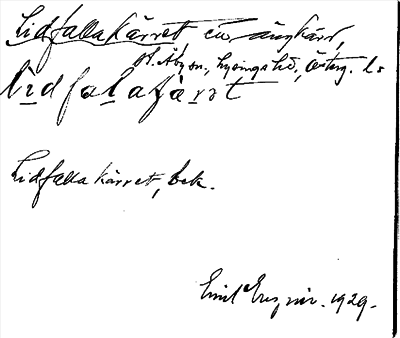 Lidfallakärret, äng kärr,
Å. Åby sn., Lysings hd, Österg. l.
lidfalafärət
Lidfalla kärret, bek.
Emil Engqvir. 1929.